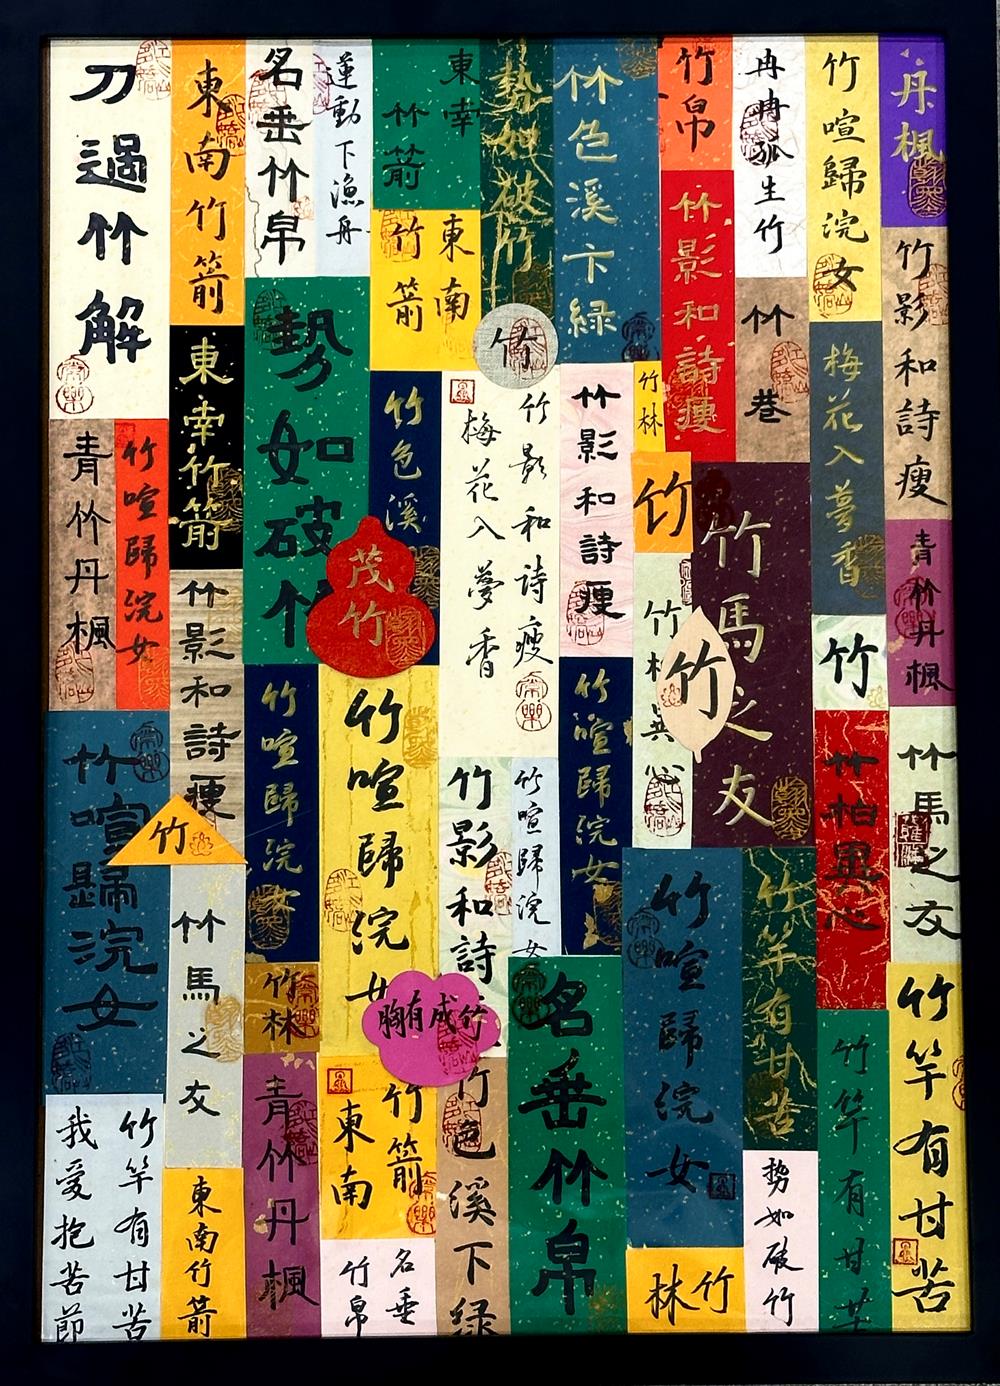 刀過竹解
東南竹箭
名垂竹帛
蓮動下漁舟
東幸竹箭
東南竹箭
勢如破竹
竹色溪卞緑
竹帛
冉冉孤生竹
竹喧歸浣女
丹楓
竹影和詩瘦
竹影和詩瘦
竹巷
梅花入夢香
青竹丹楓
竹喧歸浣女
東幸竹箭
勢如破竹
竹
竹色溪
竹影和詩瘦
梅花入夢香
竹影和詩瘦
竹林
竹
竹馬之友
竹
青竹丹楓
茂竹
竹影和詩瘦
竹喧歸浣女
竹喧歸浣女
竹喧歸浣女
竹
竹柏異心
竹柏異心
竹馬之友
竹喧歸浣女
竹
竹馬之友
竹影和詩
竹喧歸浣女
竹林
胸有成竹
名垂竹帛
竹喧歸浣女
竹竿有甘苦
竹竿有甘苦
竹竿有甘苦
竹竿有甘苦
我愛抱苦節
東南竹箭
青竹丹楓
竹箭
東南
名垂
竹帛
竹色溪下緑
竹林
勢如破竹